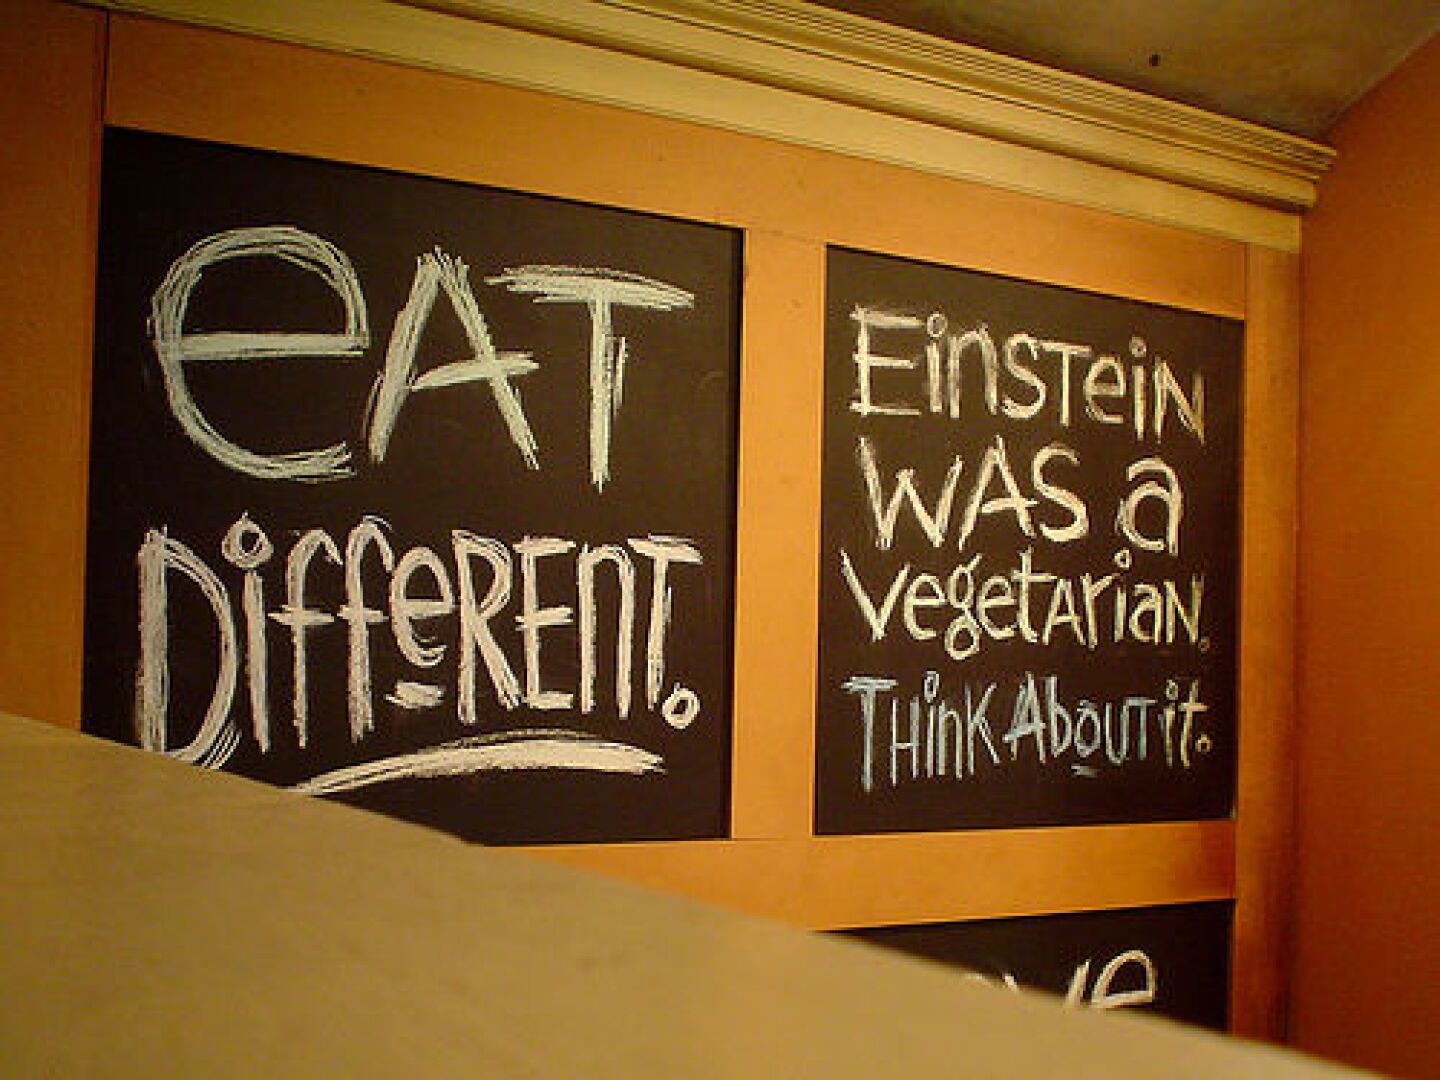 eAT
DiffeRENT.
EinsTeiN
WAS a
VegetAriaN.
THink AboUT it.